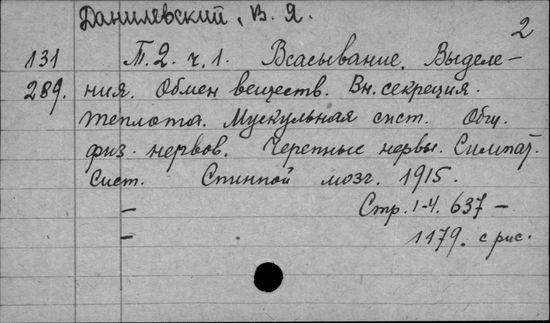 Данилевский, В. Я.
2
131 Т. 2. ч. 1. Всасывание. Выделе-
289. ния. Обмен веществ. Вн. секреция.
теплота. Мускульная сист. Общ.
физ. нервов. Черепные нервы. Симпат.
сист. Спинной мозг. 1915.
— Стр. 1-4. 637 —
— 1179. с рис.